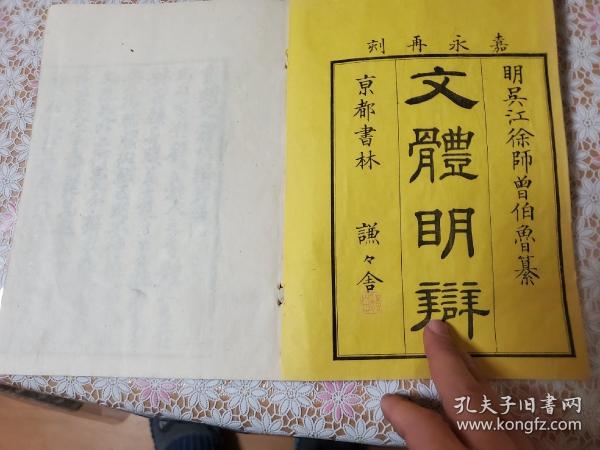 嘉永再刻
明吳江徐師曾伯魯纂
文體明辯
京都書林 謙々舎
孔夫子旧书网
www.kongfz.com